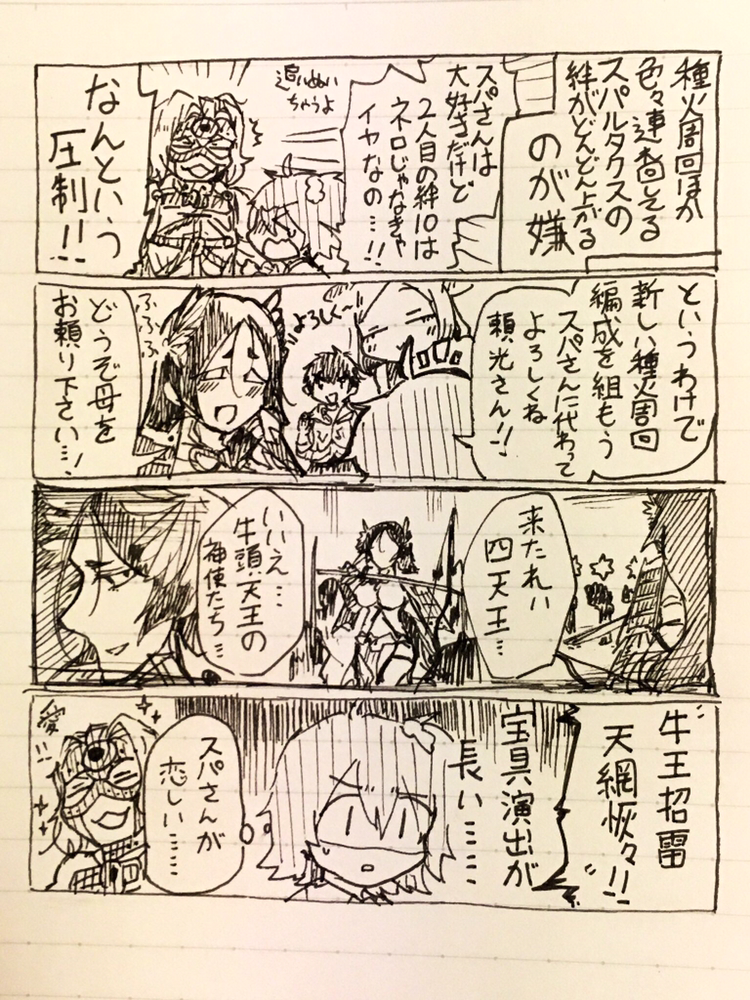 種火周回ほか
色々連れ回してる
スパルタクスの
絆がどんどん上がる
のが嫌
スパさんは
大好きだけど
2人目の絆10は
ネロじゃなきゃ
イヤなの…!!
追いぬい
ちゃうよ
なんという
圧制!!
というわけで
新しい種火周回
編成を組もう
スパさんに代わって
よろしくね
頼光さん!!
よろしく〜
ふふふ
どうぞ母を
お頼り下さい…!
来たれい
四天王…
いいえ…
牛頭天王の
神使たち…
牛王招雷
天網恢々!!
宝具演出が
長い……
スパさんが
恋しい……
愛!!